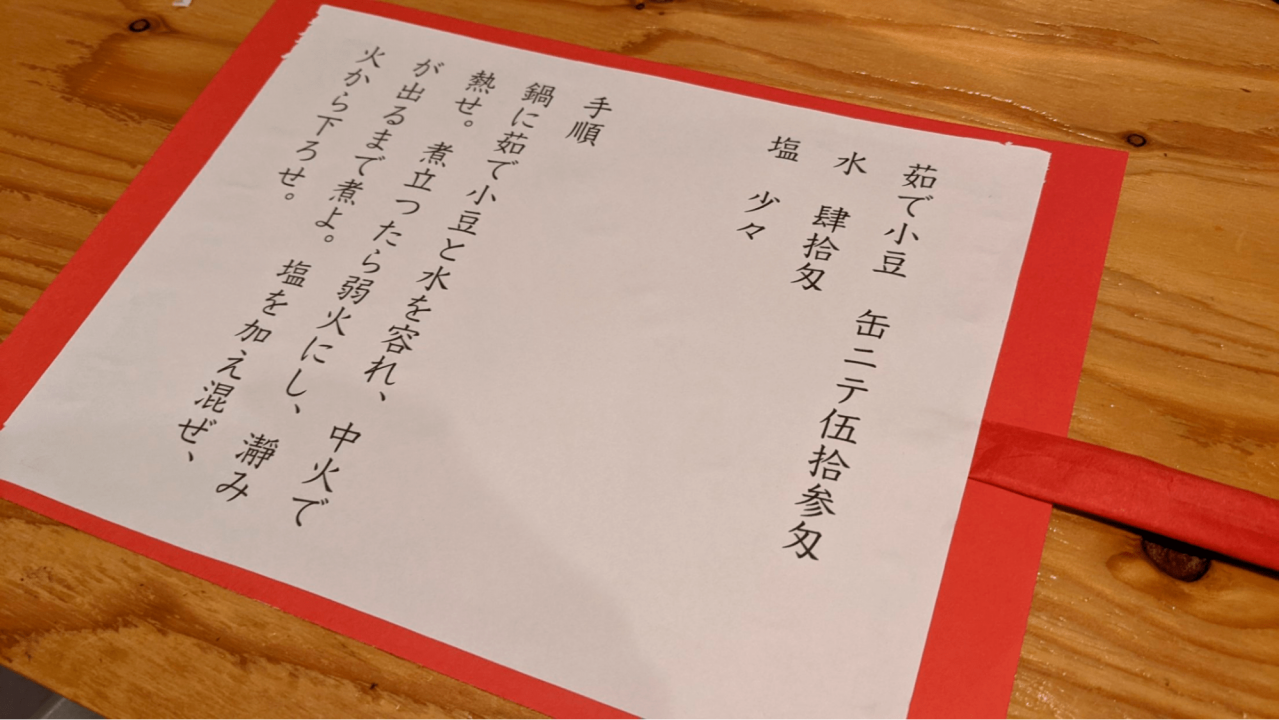 茹で小豆　缶ニテ伍拾参匁
水　肆拾匁
塩　少々
手順
鍋に茹で小豆と水を容れ、中火で
熱せ。煮立つたら弱火にし、瀞み
が出るまで煮よ。塩を加え混ぜ、
火から下ろせ。